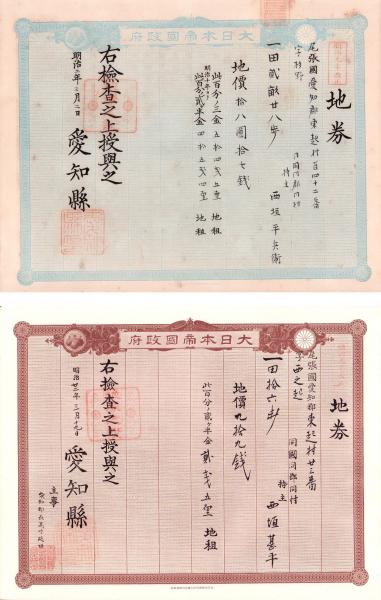 大日本帝國政府
地券
尾張國愛知郡東起村百四十二番
字
一田貳畝廿八步
同國同郡同村
持主
西垣平兵衛
地價拾八圓拾七錢
此百分ノ三金五拾四錢五厘 地租
明治十年ヨリ
此百分ノ貳ヶ半金四拾五錢四厘 地租
右檢查之上授與之
明治
愛知縣
大日本帝國政府
地券
尾張國愛知郡東起村廿三番
字西之起
同國同郡同村
一田拾六步
持主
西垣甚平
地價九拾九錢
此百分ノ貳ヶ半金貳錢五厘 地租
右檢查之上授與之
明治廿一年三月十九日
愛知縣
主事